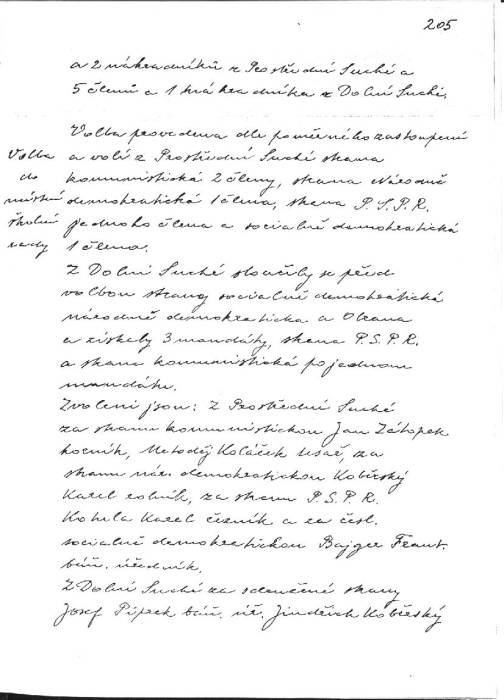 205
a 2 náhradníků z Prostřední Suché a
5 členů a 1 náhradníka z Dolní Suché.
Volba provedena dle poměrného zastoupení
Volba
a volí z Prostřední Suché strana
do
komunistická 2 členy, strana Národně
místní
demokratická 1 člena, strana P.S.P.R.
školní
jednoho člena a sociálně demokratická
rady
1 člena.
Z Dolní Suché sloučily se před
volbou strany sociálně demokratická
národně demokratická a
a získaly 3 mandáty, strana P.S.P.R.
a strana komunistická po jednom
mandátu.
Zvoleni jsou: Z Prostřední Suché
za stranu komunistickou Jan Zátopek
horník, Metoděj Koláček tesař, za
stranu nár. demokratickou Kobřský
Karel rolník, za stranu P.S.P.R.
Karel a za čsl.
sociálně demokratickou Bajger Frant.
báň. úředník.
Z Dolní Suché za sdružené strany
Josef Piprek báň. úř. Jindřich Kobřeský